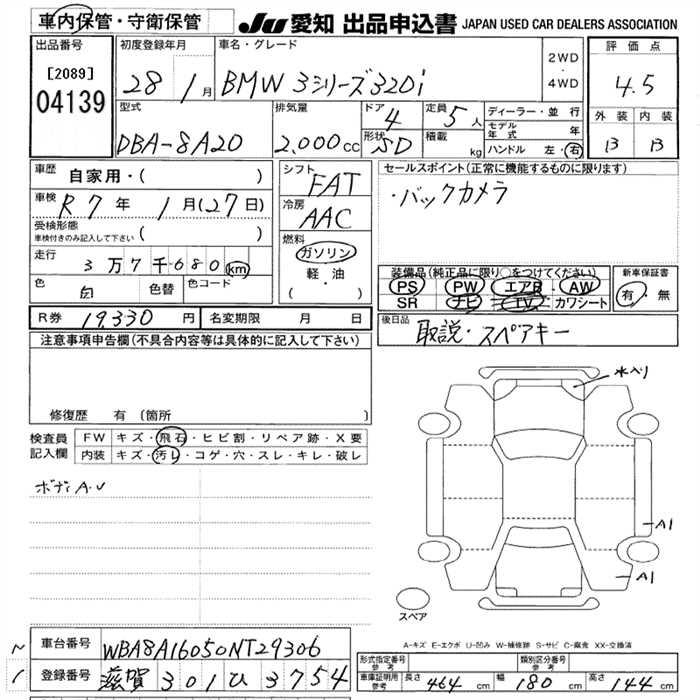 車内保管・守衛保管
JU 愛知 出品申込書 JAPAN USED CAR DEALERS ASSOCIATION
出品番号
[2089]
04139
初度登録年月
28 1月
車名・グレード
BMW 3シリーズ320i
2WD
・
4WD
評価点
4.5
外装 内装
B B
型式
DBA-8A20
排気量
2,000cc
ドア
4
形状
SD
定員
5人
積載
kg
ディーラー・並行
モデル年式 年
ハンドル 左・右
車歴
自家用・( )
車検
R7年 1月(27日)
受検形態
車検付きのみ記入して下さい ( )
走行
3万7千680km
色
白
色替
色コード
シフト
FAT
冷房
AAC
燃料
ガソリン
軽・油
( ・ )
セールスポイント(正常に機能するものに限ります)
・バックカメラ
装備品(純正品に限り○をつけてください)
PS PW エアB AW
SR ナビ TV カワシート
新車保証書
有・無
R券 19,330円
名変期限 月 日
後日品
取説・スペアキー
注意事項申告欄(不具合内容等は具体的に記入して下さい)
修復歴 有 (箇所
検査員
記入欄
FW キズ・飛石・ヒビ割・リペア跡・X要
内装 キズ・汚レ・コゲ・穴・スレ・キレ・破レ
ボディA・U
A1
A1
スペア
A-キズ E-エクボ U-凹み W-補修跡 S-サビ C-腐食 XX-交換済
車台番号
WBA8A16050NT29306
登録番号
滋賀 301 ひ 3754
形式指定番号
参考
類別区分番号
参考
車庫証明用
参考
長さ 464cm
幅 180cm
高さ 144cm